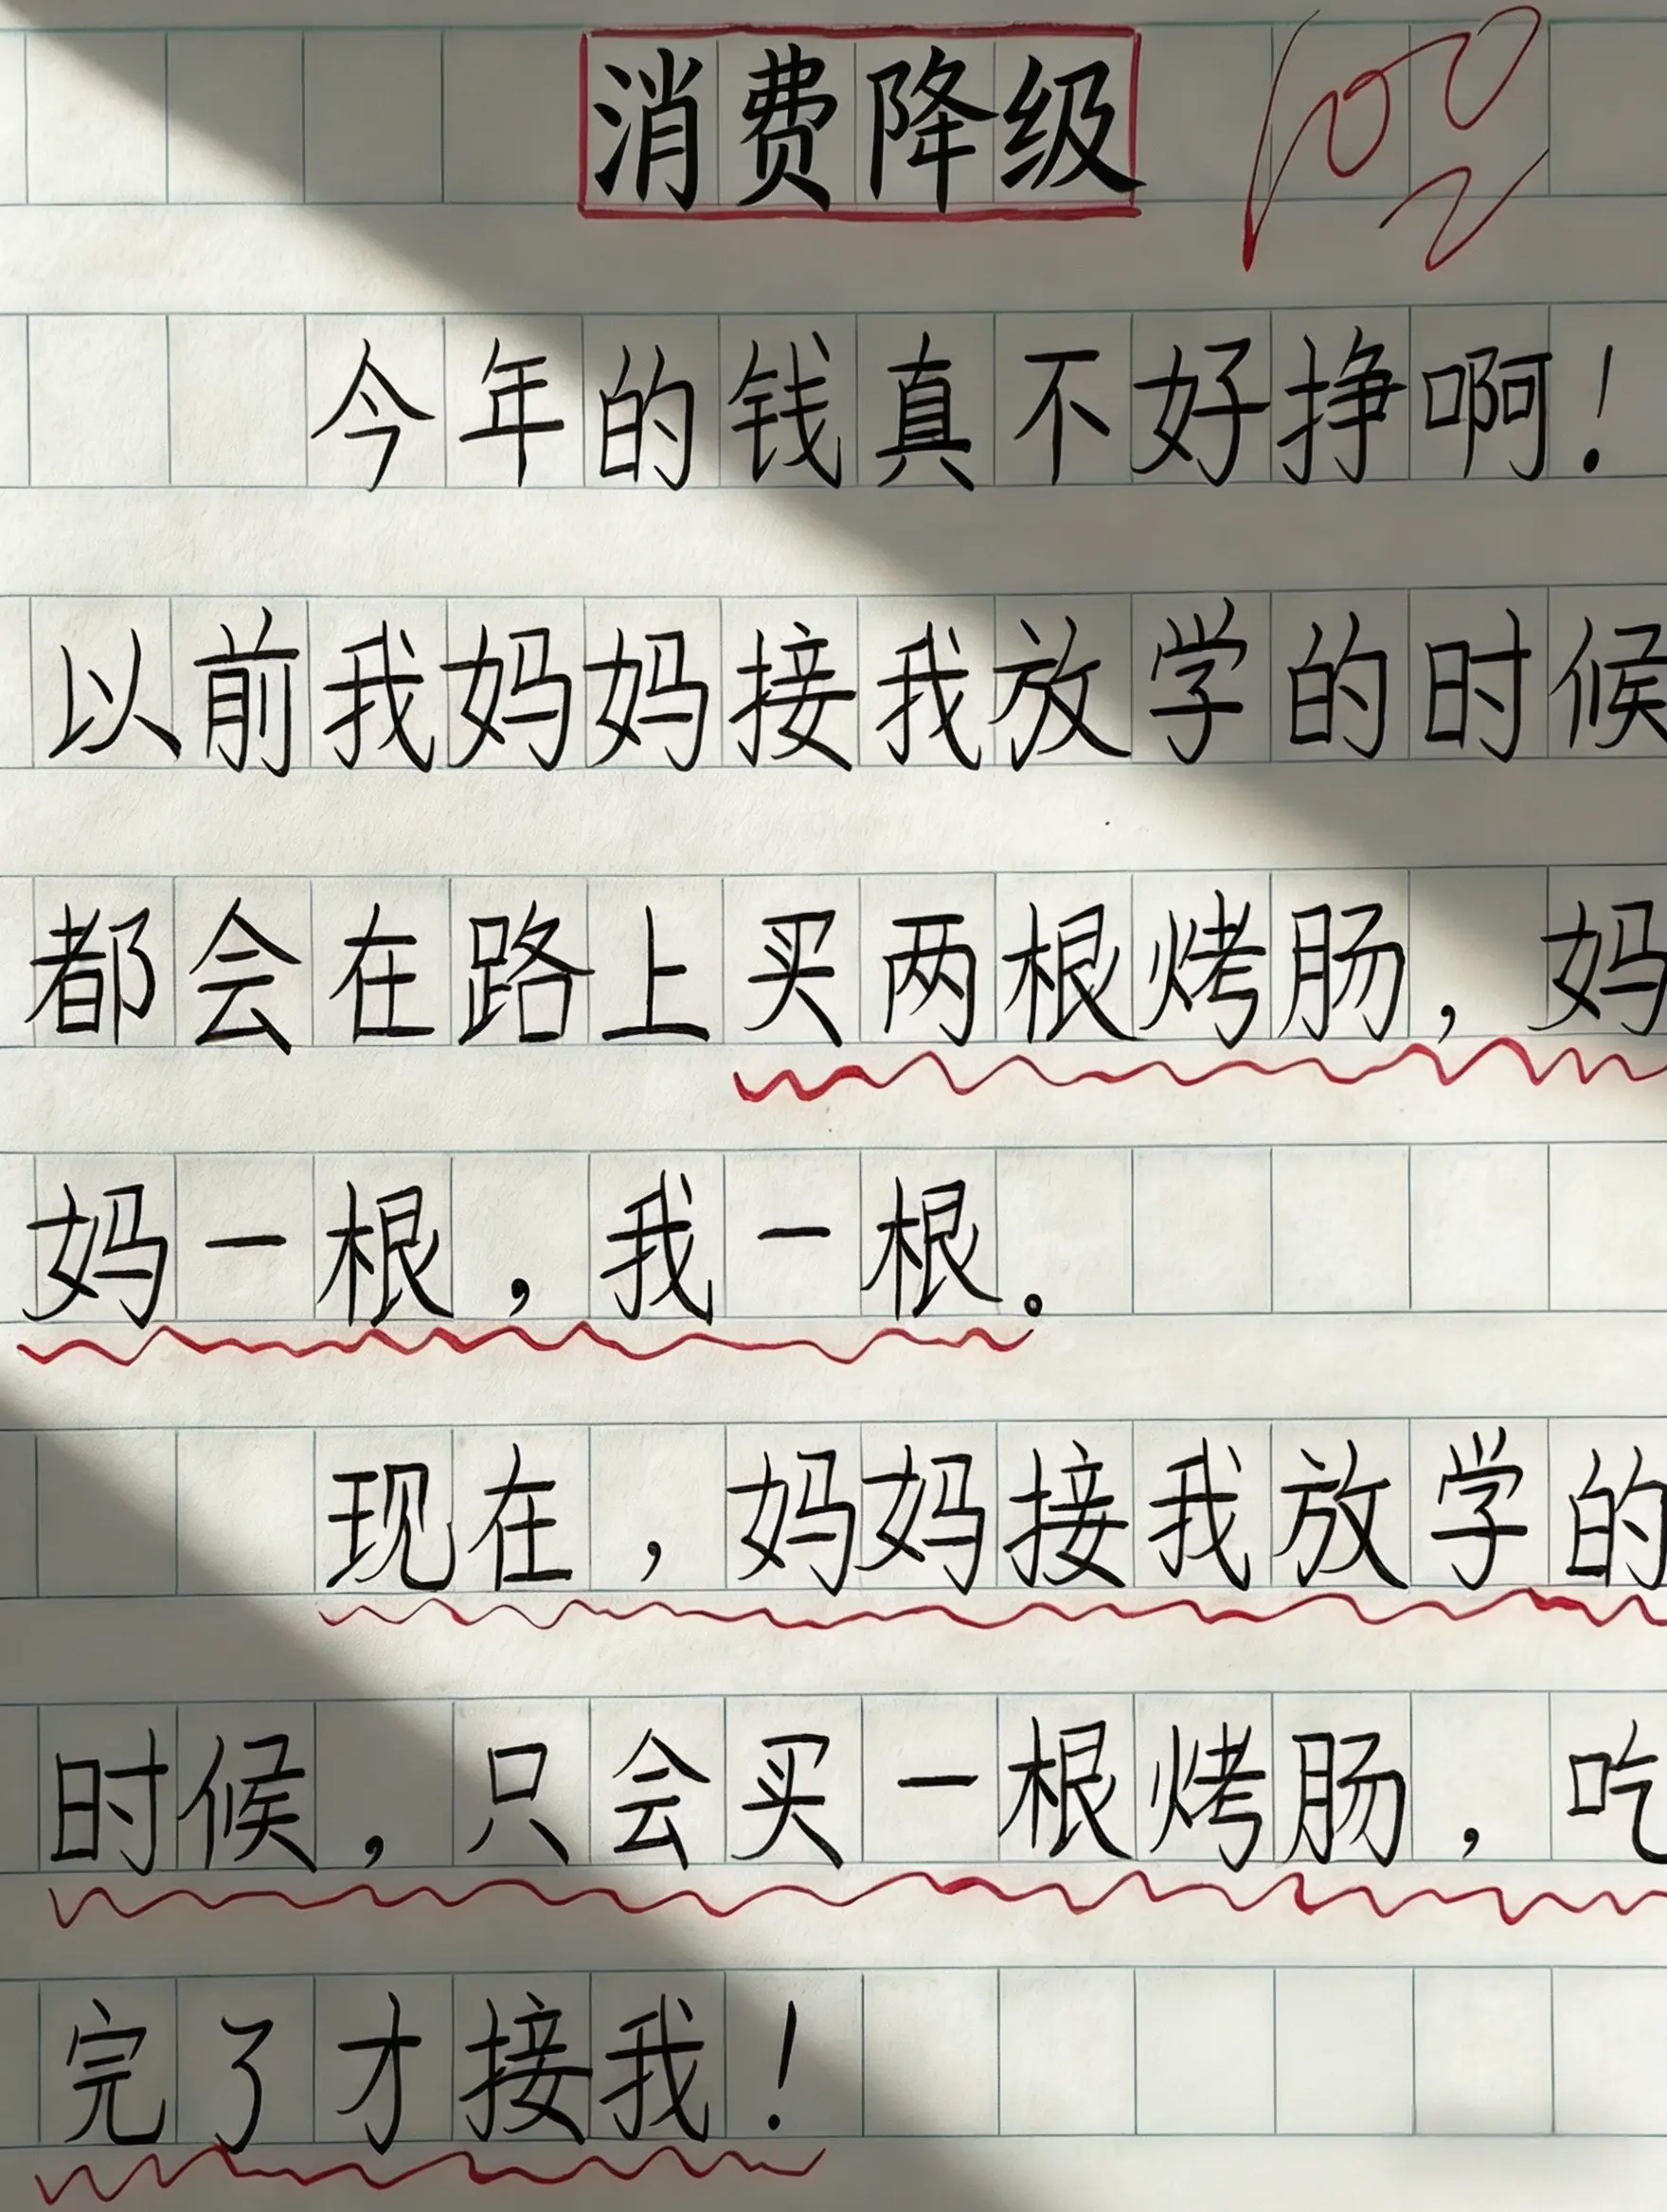 消费降级
100
今年的钱真不好挣啊！
以前我妈妈接我放学的时候
都会在路上买两根烤肠，妈
妈一根，我一根。
现在，妈妈接我放学的
时候，只会买一根烤肠，吃
完了才接我！